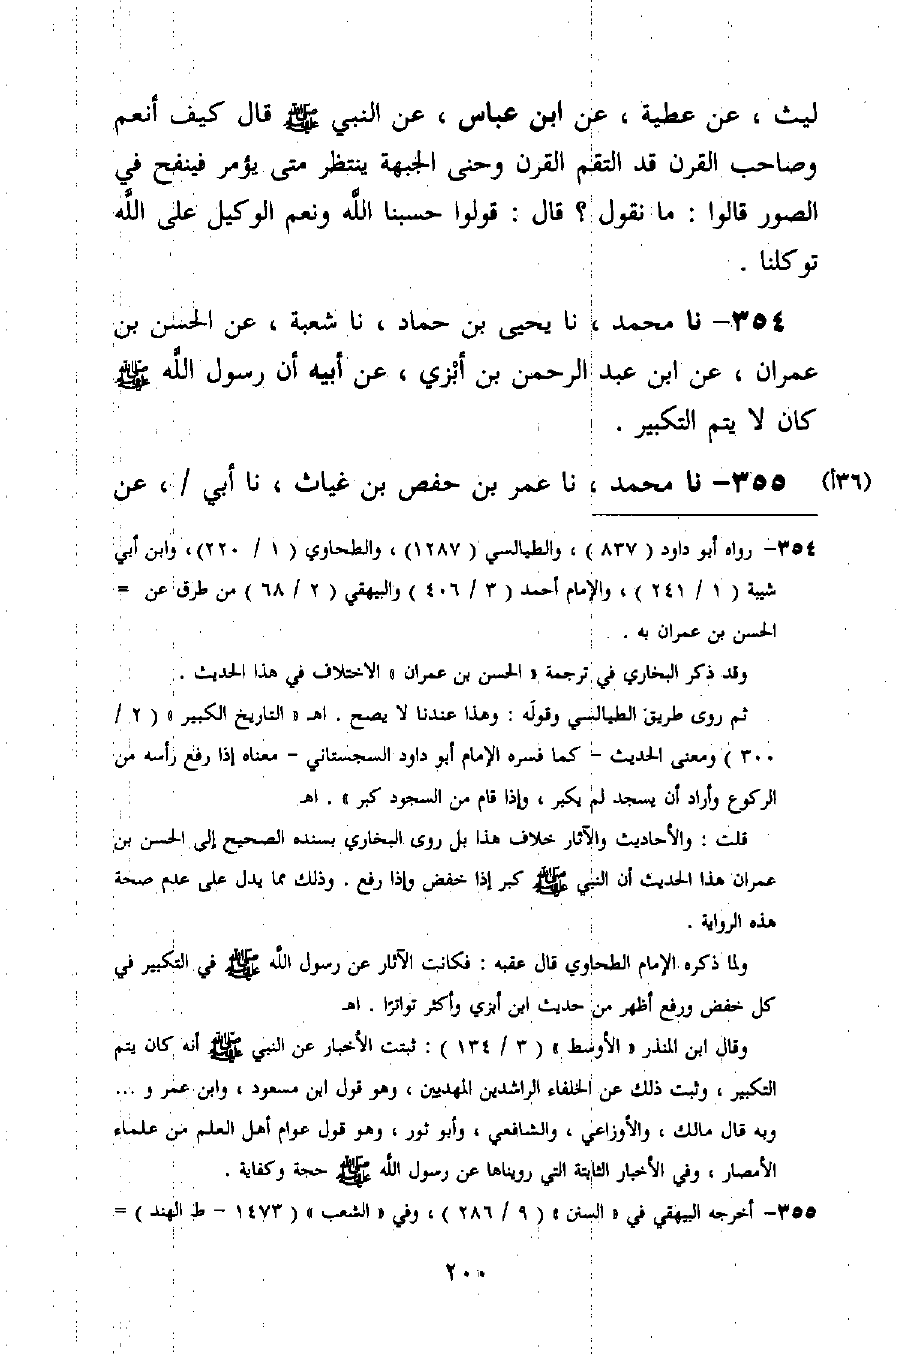 ليث ، عن عطية ، عن ابن عباس ، عن النبي ﷺ قال كيف أنعم
وصاحب القرن قد التقم القرن وحنى الجبهة ينتظر متى يؤمر فينفح في
الصور قالوا : ما نقول ؟ قال : قولوا حسبنا اللَّه ونعم الوكيل على اللَّه
توكلنا .
٣٥٤- نا محمد ، نا يحيى بن حماد ، نا شعبة ، عن الحسن بن
عمران ، عن ابن عبد الرحمن بن أبْزي ، عن أبيه أن رسول اللَّه ﷺ
كان لا يتم التكبير .
(٣٦أ) ٣٥٥- نا محمد ، نا عمر بن حفص بن غياث ، نا أبي / ، عن
٣٥٤- رواه أبو داود ( ٨٣٧ ) ، والطيالسي ( ١٢٨٧) ، والطحاوي ( ١ / ٢٢٠)، وابن أبي
شيبة ( ١ / ٢٤١ ) ، والإمام أحمد ( ٣ / ٤٠٦ ) والبيهقي ( ٢ / ٦٨ ) من طرق عن =
الحسن بن عمران به .
وقد ذكر البخاري في ترجمة « الحسن بن عمران » الاختلاف في هذا الحديث .
ثم روى طريق الطيالسي وقوله : وهذا عندنا لا يصح . اهـ « التاريخ الكبير » ( ٢ /
٣٠٠ ) ومعنى الحديث - كما فسره الإمام أبو داود السجستاني - معناه إذا رفع رأسه من
الركوع وأراد أن يسجد لم يكبر ، وإذا قام من السجود كبر » . اهـ
قلت : والأحاديث والآثار خلاف هذا بل روى البخاري بسنده الصحيح إلى الحسن بن
عمران هذا الحديث أن النبي ﷺ كبر إذا خفض وإذا رفع . وذلك مما يدل على عدم صحة
هذه الرواية .
ولما ذكره الإمام الطحاوي قال عقبه : فكانت الآثار عن رسول اللَّه ﷺ في التكبير في
كل خفض ورفع أظهر من حديث ابن أبزي وأكثر تواترًا . اهـ
وقال ابن المنذر « الأوسط » ( ٣ / ١٣٤ ) : ثبتت الأخبار عن النبي ﷺ أنه كان يتم
التكبير ، وثبت ذلك عن الخلفاء الراشدين المهديين ، وهو قول ابن مسعود ، وابن عمر و ...
وبه قال مالك ، والأوزاعي ، والشافعي ، وأبو ثور ، وهو قول عوام أهل العلم من علماء
الأمصار ، وفي الأخبار الثابتة التي رويناها عن رسول اللَّه ﷺ حجة وكفاية .
٣٥٥- أخرجه البيهقي في « السنن » ( ٩ / ٢٨٦ ) ، وفي « الشعب » ( ١٤٧٣ - ط الهند ) =
٢٠٠